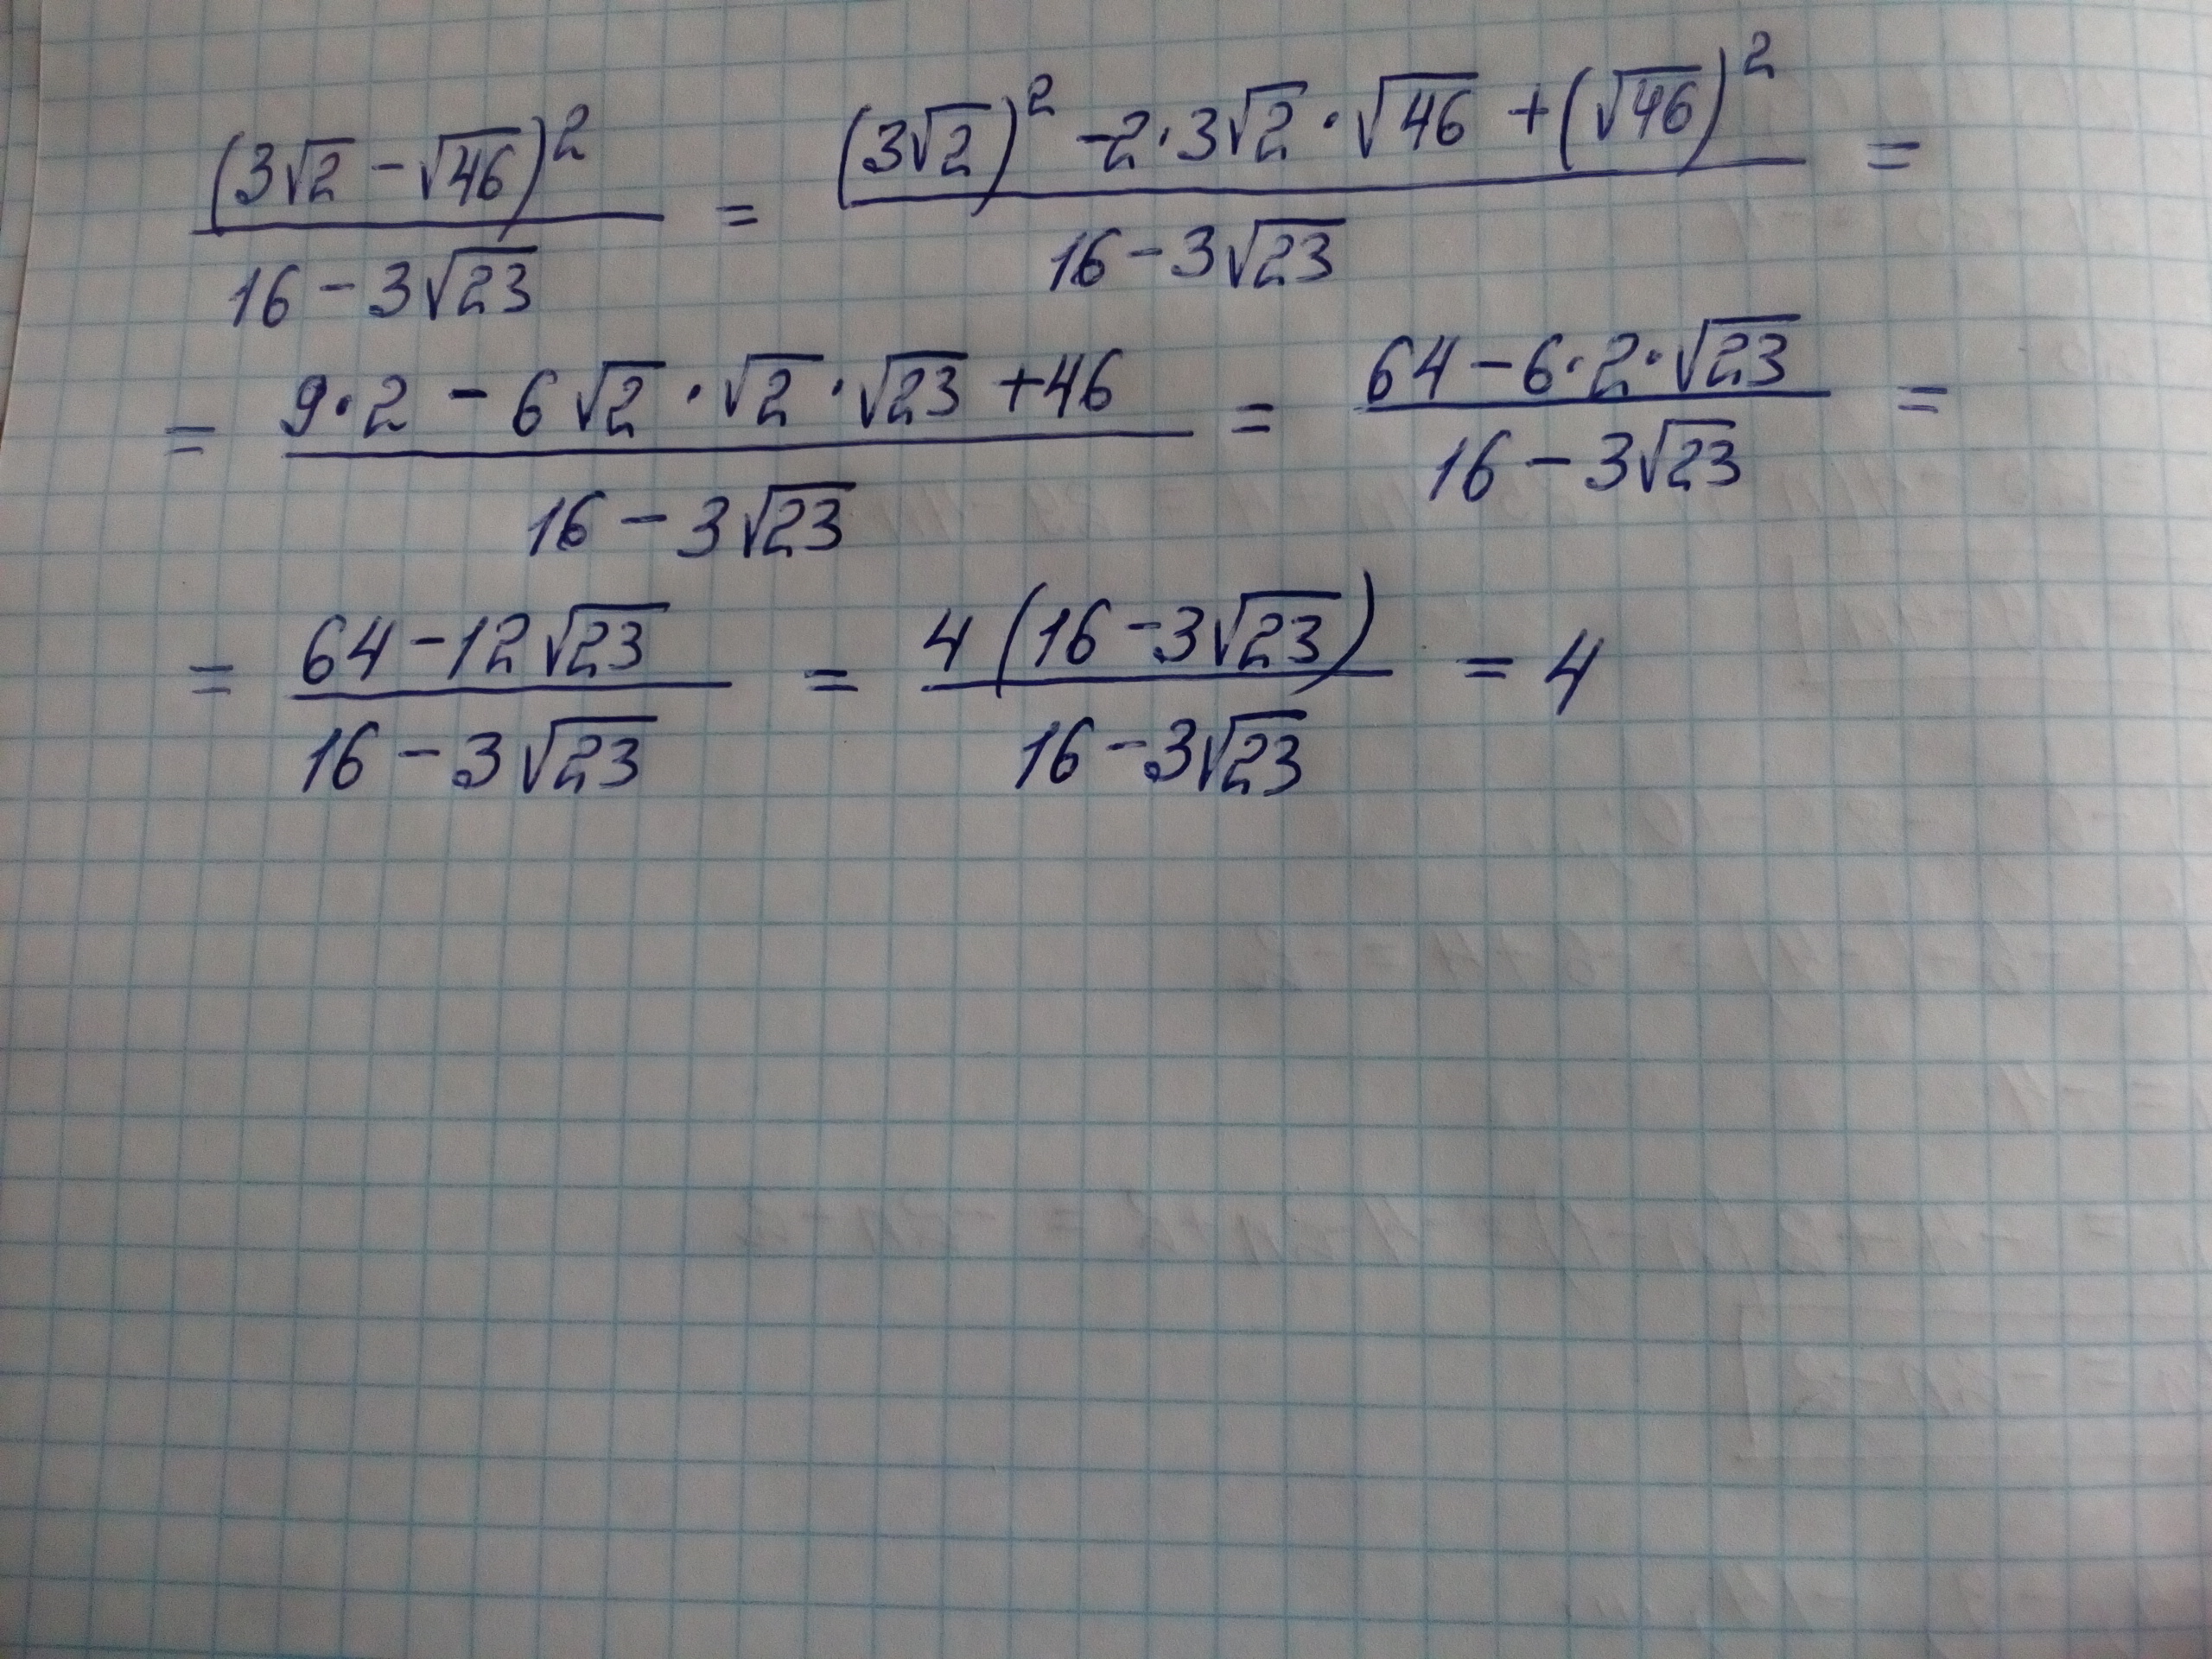 (3√2 − √46)² / (16 − 3√23) = ((3√2)² − 2·3√2·√46 + (√46)²) / (16 − 3√23) =
= (9·2 − 6√2·√2·√23 + 46) / (16 − 3√23) = (64 − 6·2·√23) / (16 − 3√23) =
= (64 − 12√23) / (16 − 3√23) = 4(16 − 3√23) / (16 − 3√23) = 4